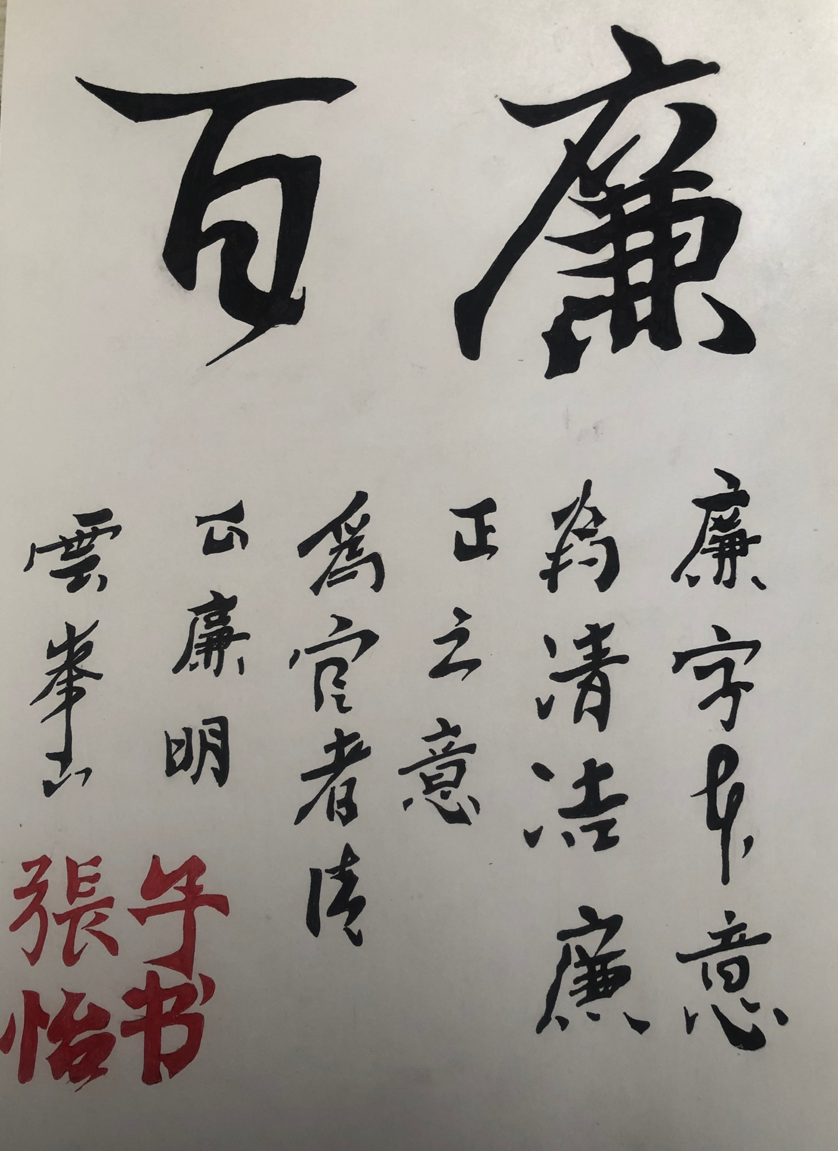 廉百
廉字本意
为清洁廉
正之意
爲官者清
正廉明
雲峯山
張怡
午书